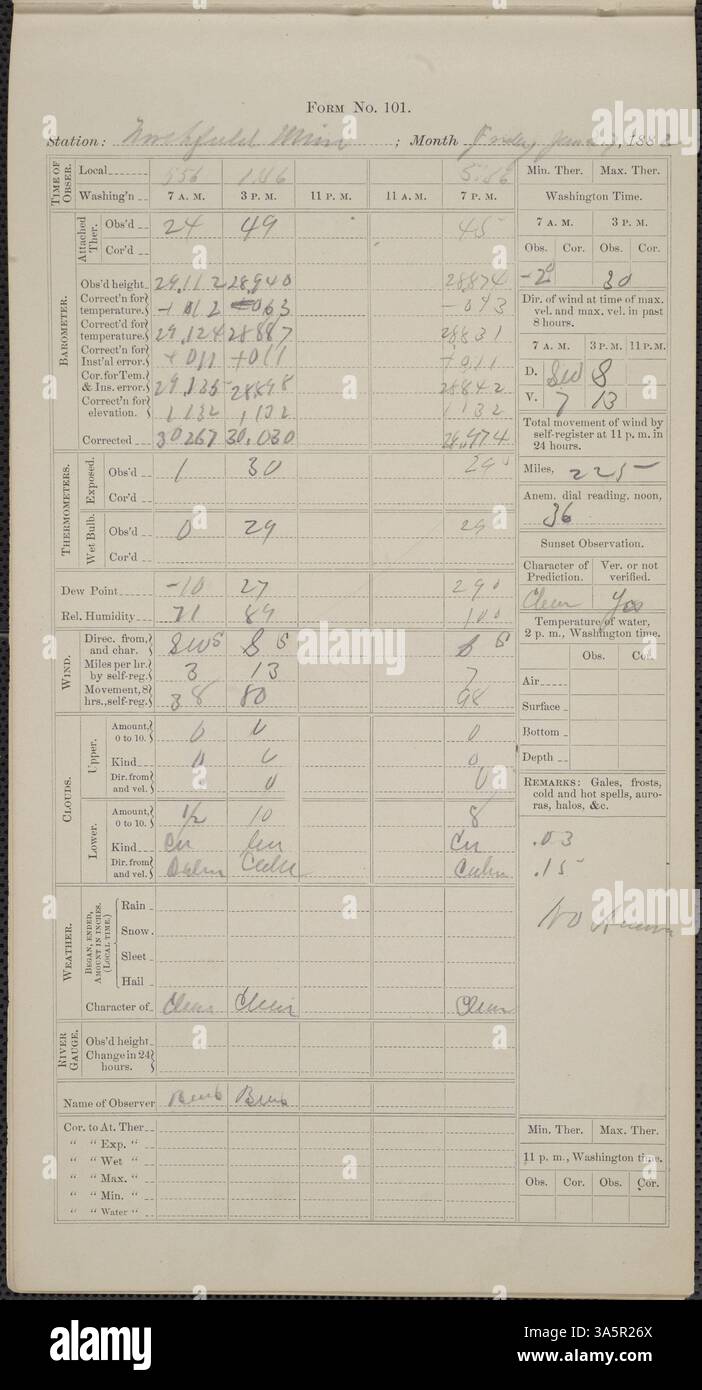 FORM No. 101.
Station: Northfield Minn ; Month Friday Jan , 188
TIME OF OBSER. Local 556 1.56 5.56
Washing'n 7 A. M. 3 P. M. 11 P. M. 11 A. M. 7 P. M.
Attached Ther. Obs'd 24 49 45
Cor'd
BAROMETER.
Obs'd height 29.112 28.940 28.874
Correct'n for temperature. +012 -063 -043
Correct'd for temperature. 29.124 28887 28831
Correct'n for Inst'al error. +011 +011 +011
Cor. for Tem. & Ins. error. 29.135 28.898 28.842
Correct'n for elevation. 1132 1,132 1132
Corrected 30267 30.030 29.974
THERMOMETERS.
Exposed. Obs'd 1 30 29
Cor'd
Wet Bulb. Obs'd 0 29 29
Cor'd
Dew Point -10 27 290
Rel. Humidity 71 89 100
WIND.
Direc. from, and char. SW S S S S S
Miles per hr. by self-reg. 3 13 7
Movement, 8 hrs., self-reg. 38 80 98
CLOUDS.
Upper. Amount, 0 to 10. 0 0 0
Kind 0 0 0
Dir. from and vel. 0 0
Lower. Amount, 0 to 10. 1/2 10 8
Kind Cu Cu Cu
Dir. from and vel. Calm Calm Calm
WEATHER.
BEGAN, ENDED, AMOUNT IN INCHES. (LOCAL TIME.)
Rain
Snow.
Sleet
Hail
Character of Clear Clear Clear
RIVER GAUGE.
Obs'd height
Change in 24 hours.
Name of Observer
Cor. to At. Ther
" " Exp. "
" " Wet "
" " Max. "
" " Min. "
" " Water "
Min. Ther. Max. Ther.
Washington Time.
7 A. M. 3 P. M.
Obs. Cor. Obs. Cor.
-2 30
Dir. of wind at time of max.
vel. and max. vel. in past
8 hours.
7 A. M. 3 P. M. 11 P. M.
D. SW S
V. 7 13
Total movement of wind by
self-register at 11 p. m. in
24 hours.
Miles, 225
Anem. dial reading, noon,
36
Sunset Observation.
Character of Prediction. Ver. or not verified.
Clear Yes
Temperature of water,
2 p. m., Washington time.
Obs. Cor.
Air
Surface
Bottom
Depth
REMARKS: Gales, frosts,
cold and hot spells, auro-
ras, halos, &c.
.03
.15
No
Min. Ther. Max. Ther.
11 p. m., Washington time.
Obs. Cor. Obs. Cor.
alamy
Image ID: 3A5R26X
www.alamy.com